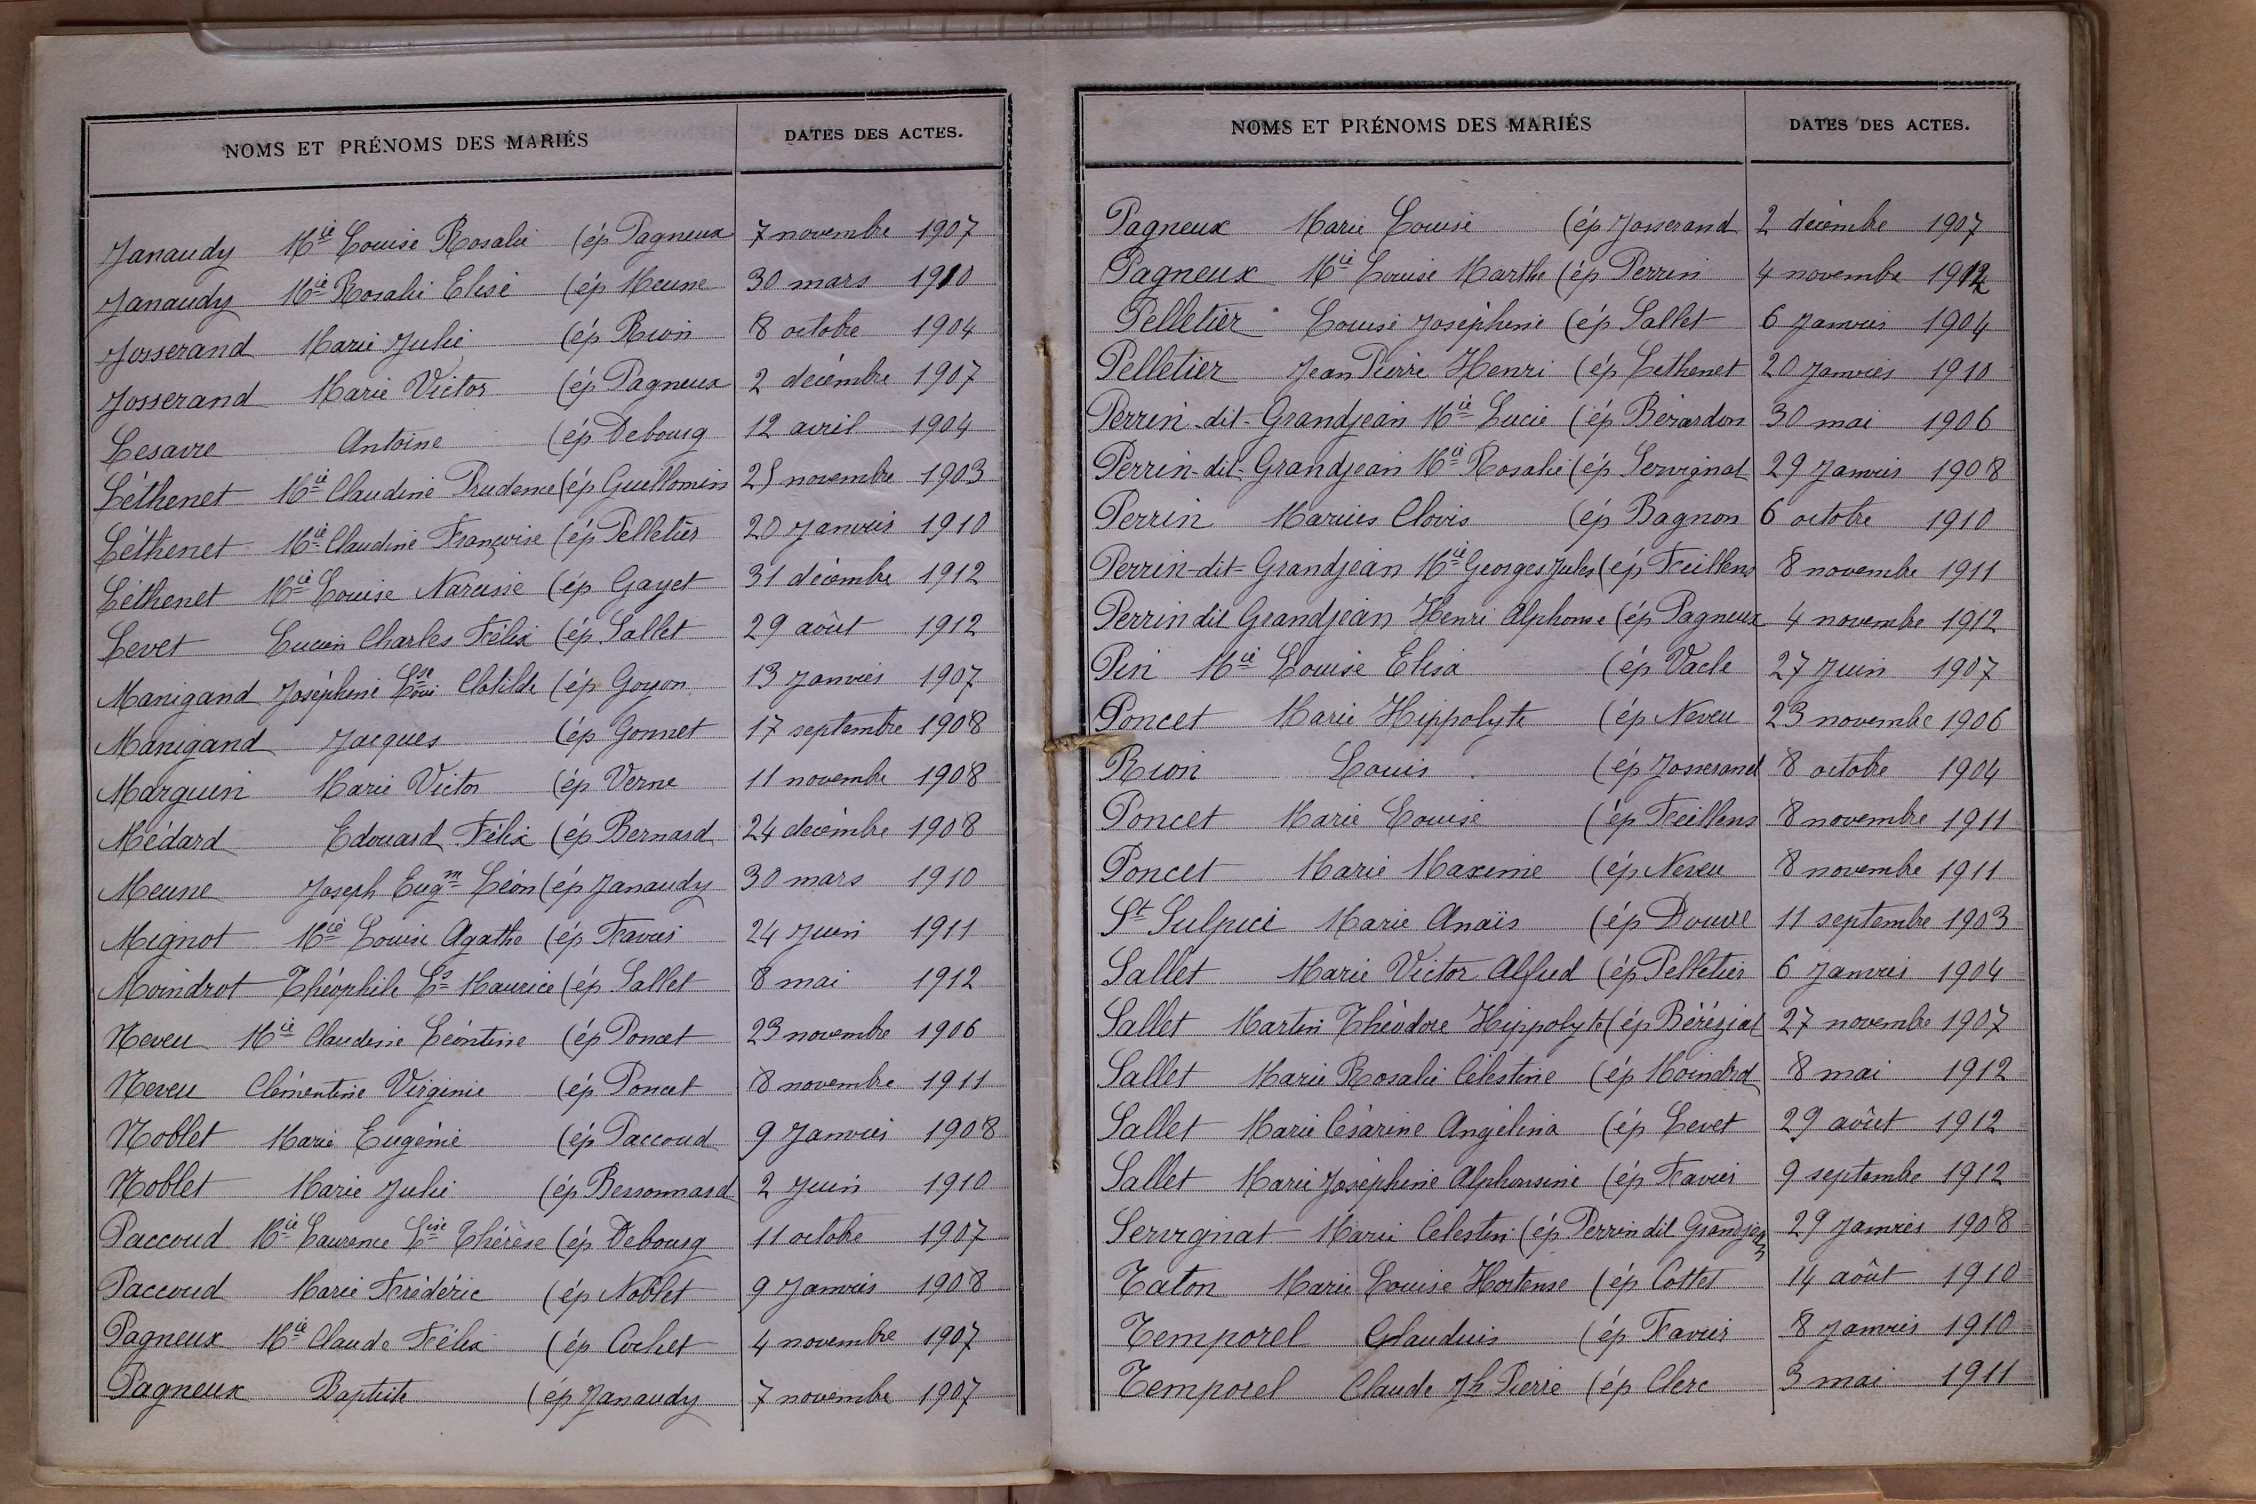 NOMS ET PRÉNOMS DES MARIÉS DATES DES ACTES.
Janaudy Mie Louise Rosalie (ép Pagneux 7 novembre 1907
Janaudy Mie Rosalie Elise (ép Meune 30 mars 1910
Josserand Marie Julie (ép Rion 8 octobre 1904
Josserand Marie Victor (ép Pagneux 2 décembre 1907
Lesavre Antoine (ép Debourg 12 avril 1904
Léthenet Mie Claudine Prudence (ép Guillomin 25 novembre 1903
Léthenet Mie Claudine Françoise (ép Pelletier 20 Janvier 1910
Léthenet Mie Louise Narcisse (ép Gayet 31 décembre 1912
Levet Lucien Charles Félix (ép Sallet 29 août 1912
Manigand Joséphine Louise Clotilde (ép Goyon 13 Janvier 1907
Manigand Jacques (ép Gonnet 17 septembre 1908
Marguin Marie Victor (ép Verne 11 novembre 1908
Médard Edouard Félix (ép Bernard 24 décembre 1908
Meune Joseph Eugm Léon (ép Janaudy 30 mars 1910
Mignot Mie Louise Agathe (ép Favier 24 Juin 1911
Moindrot Théophile Ls Maurice (ép Sallet 8 mai 1912
Neveu Mie Claudine Léontine (ép Poncet 23 novembre 1906
Neveu Clémentine Virginie (ép Poncet 8 novembre 1911
Noblet Marie Eugénie (ép Paccoud 9 Janvier 1908
Noblet Marie Julie (ép Bessonnard 2 Juin 1910
Paccoud Mie Laurence Lise Thérèse (ép Debourg 11 octobre 1907
Paccoud Marie Frédéric (ép Noblet 9 Janvier 1908
Pagneux Mie Claude Félix (ép Cochet 4 novembre 1907
Pagneux Baptiste (ép Janaudy 7 novembre 1907
NOMS ET PRÉNOMS DES MARIÉS DATES DES ACTES.
Pagneux Marie Louise (ép Josserand 2 décembre 1907
Pagneux Mie Louise Marthe (ép Perrin 4 novembre 1912
Pelletier Louise Joséphine (ép Sallet 6 Janvier 1904
Pelletier Jean Pierre Henri (ép Lethenet 20 Janvier 1910
Perrin-dit-Grandjean Mie Lucie (ép Bérardon 30 mai 1906
Perrin-dit-Grandjean Mie Rosalie (ép Servignat 29 Janvier 1908
Perrin Marius Clovis (ép Bagnon 6 octobre 1910
Perrin-dit-Grandjean Mie Georges Jules (ép Feillens 8 novembre 1911
Perrin dit Grandjean Henri Alphonse (ép Pagneux 4 novembre 1912
Pin Mie Louise Elisa (ép Vacle 27 Juin 1907
Poncet Marie Hippolyte (ép Neveu 23 novembre 1906
Rion Louis (ép Josserand 8 octobre 1904
Poncet Marie Louise (ép Feillens 8 novembre 1911
Poncet Marie Maxime (ép Neveu 8 novembre 1911
St Sulpice Marie Anaïs (ép Douvre 11 septembre 1903
Sallet Marie Victor Alfred (ép Pelletier 6 Janvier 1904
Sallet Martin Théodore Hippolyte (ép Béréziat 27 novembre 1907
Sallet Marie Rosalie Célestine (ép Moindrot 8 mai 1912
Sallet Marie Césarine Angélina (ép Levet 29 août 1912
Sallet Marie Joséphine Alphonsine (ép Favier 9 septembre 1912
Servignat Marie Célestin (ép Perrin dit Grandjean 29 Janvier 1908
Taton Marie Louise Hortense (ép Cottet 14 août 1910
Temporel Claudius (ép Favier 8 Janvier 1910
Temporel Claude Jh Pierre (ép Clerc 3 mai 1911